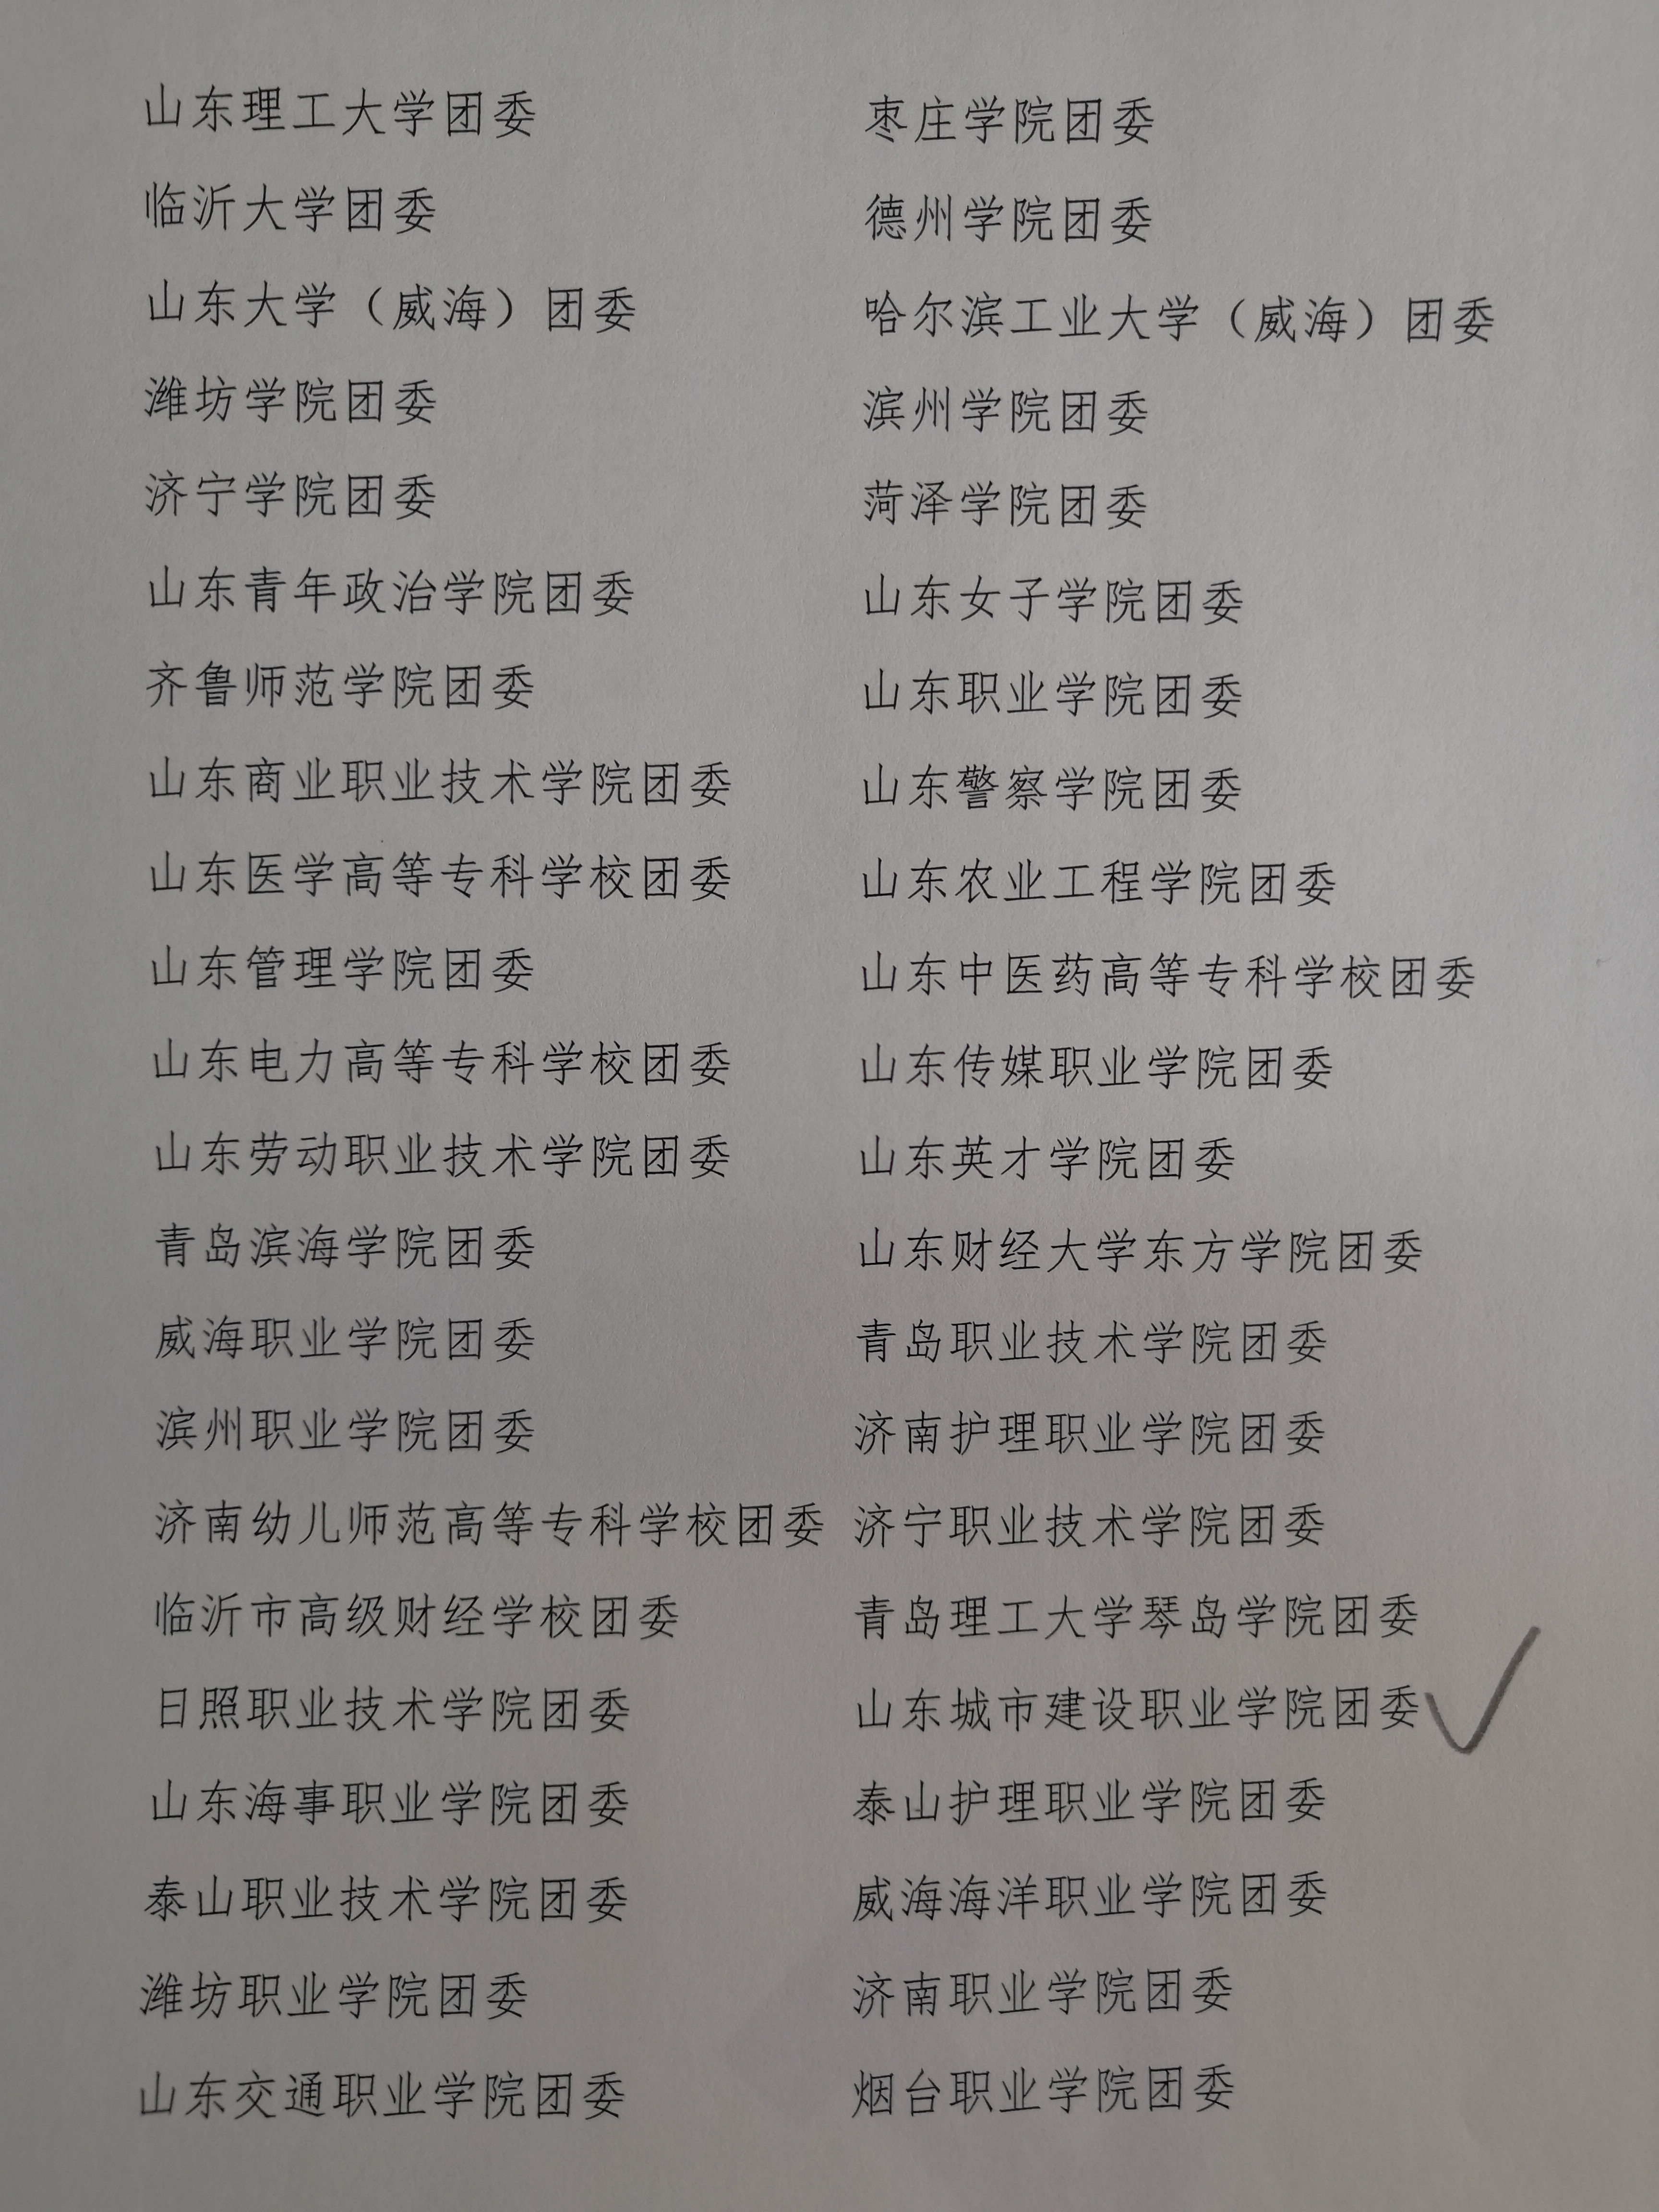 山东理工大学团委 枣庄学院团委
临沂大学团委 德州学院团委
山东大学（威海）团委 哈尔滨工业大学（威海）团委
潍坊学院团委 滨州学院团委
济宁学院团委 菏泽学院团委
山东青年政治学院团委 山东女子学院团委
齐鲁师范学院团委 山东职业学院团委
山东商业职业技术学院团委 山东警察学院团委
山东医学高等专科学校团委 山东农业工程学院团委
山东管理学院团委 山东中医药高等专科学校团委
山东电力高等专科学校团委 山东传媒职业学院团委
山东劳动职业技术学院团委 山东英才学院团委
青岛滨海学院团委 山东财经大学东方学院团委
威海职业学院团委 青岛职业技术学院团委
滨州职业学院团委 济南护理职业学院团委
济南幼儿师范高等专科学校团委 济宁职业技术学院团委
临沂市高级财经学校团委 青岛理工大学琴岛学院团委
日照职业技术学院团委 山东城市建设职业学院团委
山东海事职业学院团委 泰山护理职业学院团委
泰山职业技术学院团委 威海海洋职业学院团委
潍坊职业学院团委 济南职业学院团委
山东交通职业学院团委 烟台职业学院团委